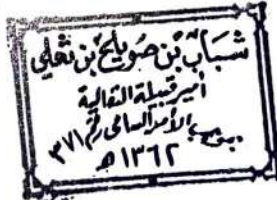 شباب بن صويلح بن ثعلي
أمير قبيلة الثعالية
بموجب الأمر السامي رقم ٣٧١
١٣٦٢ هـ